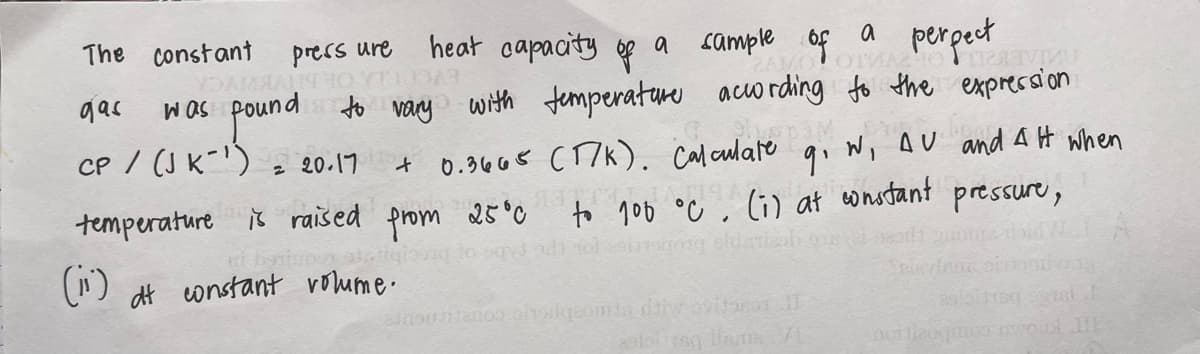 The constant press ure heat capacity of a sample of a perpect
gas was pound to vary with temperature according to the expression
CP / (J K⁻¹) = 20.17 + 0.3665 (T/K). Calculate q, W, ΔU and ΔH when
temperature is raised prom 25°C to 100 °C. (i) at constant pressure,
(ii) at constant volume.